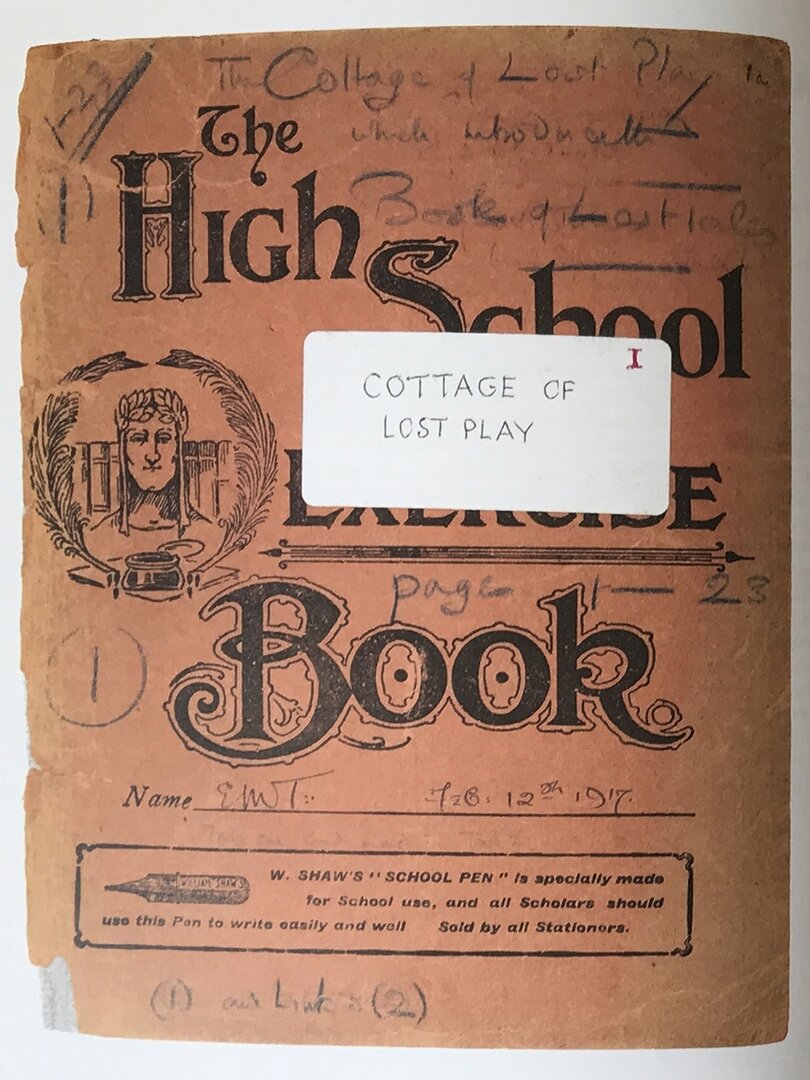 1-23
The Cottage of Lost Play
1a
The
which introduceth
1)
High
Book of Lost Tales
School
I
COTTAGE OF
LOST PLAY
EXERCISE
page 1 — 23
Book
1
Name EMT: Feb: 12th 1917.
WILLIAM SHAW'S
W. SHAW'S "SCHOOL PEN" is specially made
for School use, and all Scholars should
use this Pen to write easily and well Sold by all Stationers.
(1) (2)